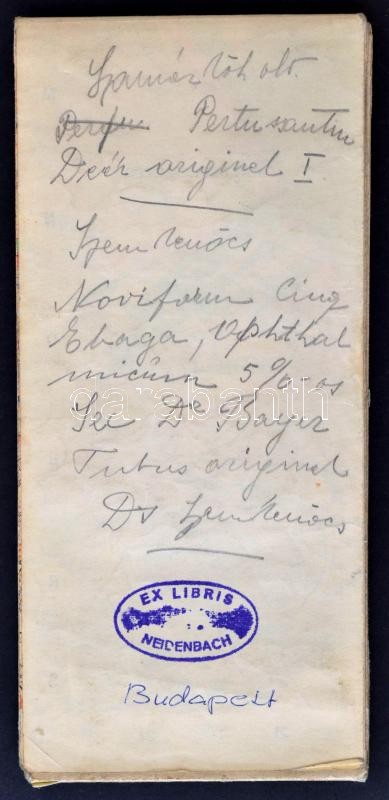 Szamár köh. olt.
Pertussautin
Deér originel I
Szem kenőcs
Noviform Cinq
Ebaga, Ophthal
micum 5%-os
Sec Dr Bayer
Tubus originel
Ds Szemkenőcs
darabanth
EX LIBRIS
NEIDENBACH
Budapest